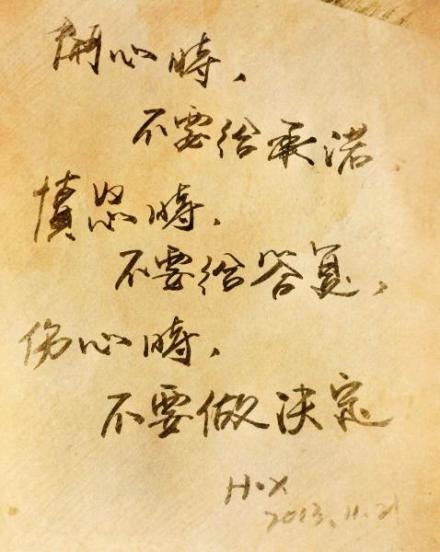 開心時，
不要给承诺
憤怒時，
不要给答复，
伤心時，
不要做决定
H.X
2013.11.21